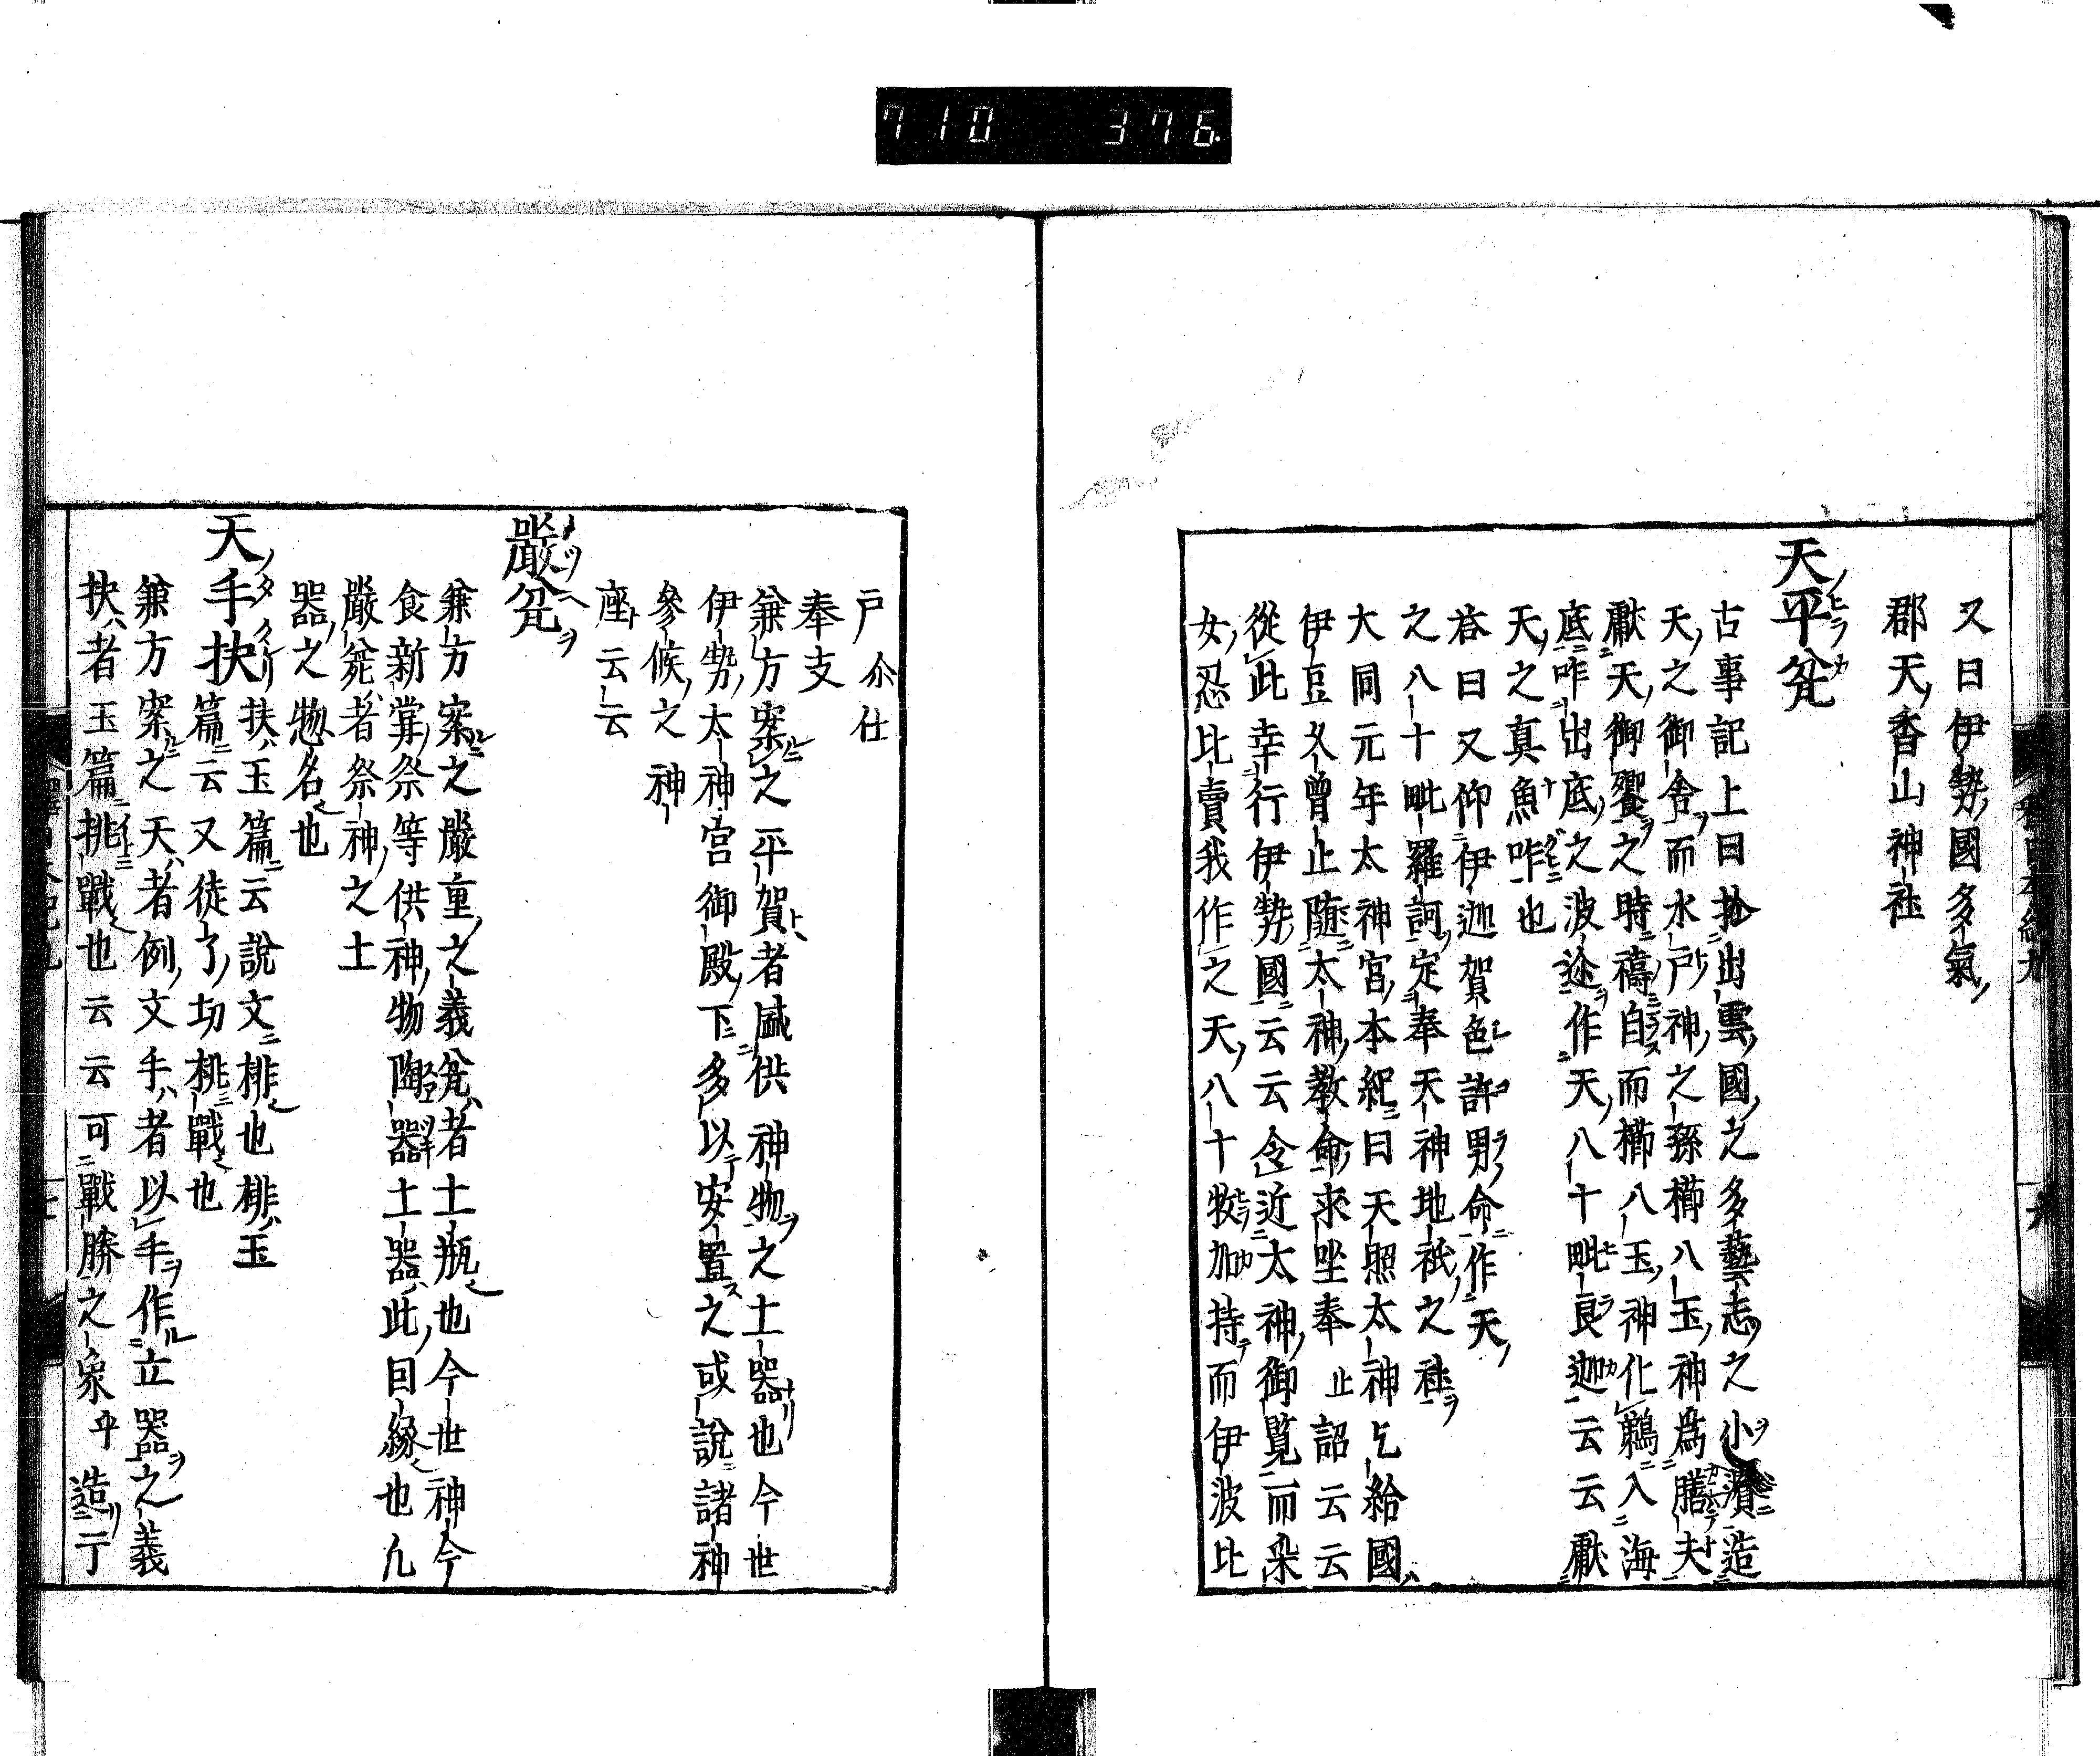 710 376.
又曰伊勢國多氣
郡天香山神社
天平瓮
古事記上曰抄出雲國之多藝志之小濱造
天之御舎而水戸神之孫櫛八玉神爲膳夫
獻天御饗之時禱白而櫛八玉神化鵜入海
底咋出底之波迩作天八十毗良迦云云獻
天之真魚咋也
荅曰又仰伊迦賀色許男命作天
之八十毗羅訶定奉天神地祇之社
大同元年太神宮本紀曰天照太神乞給國
伊豆久曽止随太神教命求坐奉止詔云云
從此幸行伊勢國云云令近太神御覧而朶
女忍比賣我作之天八十牧加持而伊波比
戸尒仕
奉支
兼方案之平賀者盛供神物之土器也今世
伊勢太神宮御殿下多以安置之或說諸神
參候之神
座云云
嚴瓮
兼方案之嚴重之義瓮者土瓶也今世神今
食新甞祭等供神物陶器土器此囙縁也凢
嚴瓮者祭神之土
器之惣名也
天手抉
抉玉篇云說文挑也挑玉
篇云又徒了切挑戰也
兼方案之天者例文手者以手作立器之義
抉者玉篇挑戰也云云可戰勝之象乎造丁